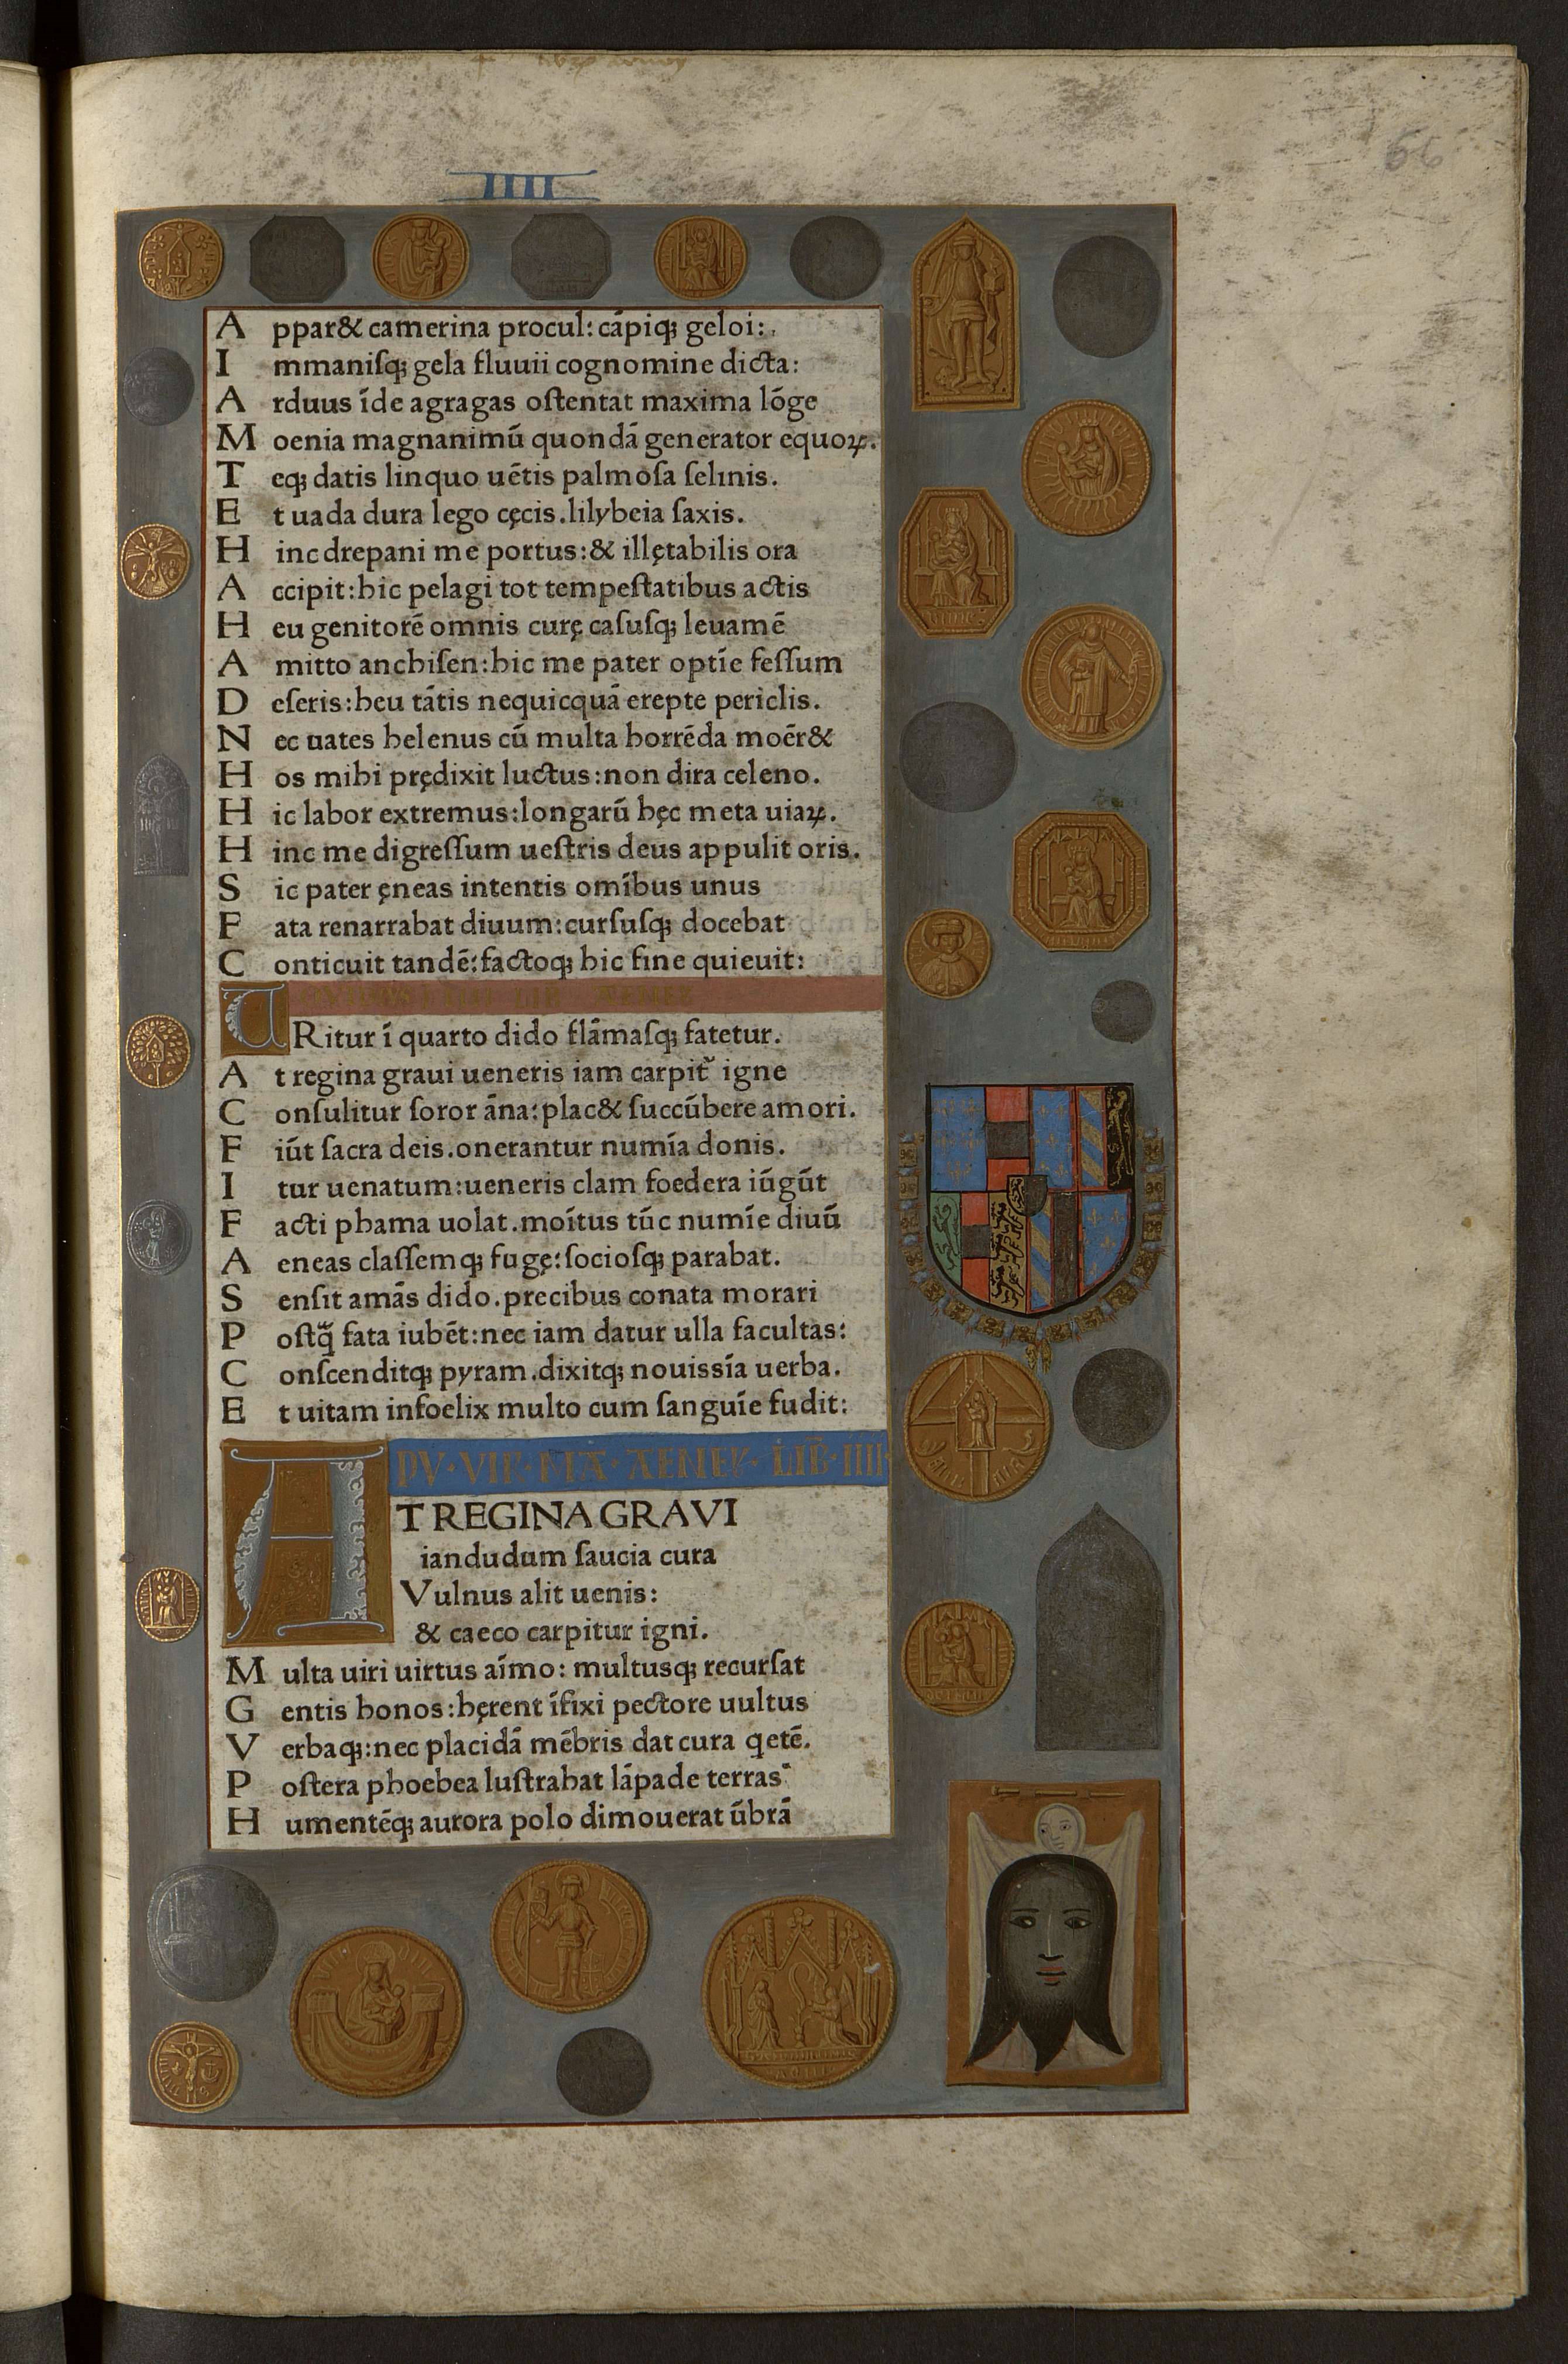 IIII
66
Appar& camerina procul: cāpiq; geloi:
Immaniſq; gela fluuii cognomine dicta:
Arduus īde agragas oſtentat maxima lōge
Moenia magnanimū quondā generator equoꝝ.
Teq; datis linquo uētis palmoſa ſelinis.
Et uada dura lego cęcis.lilybeia ſaxis.
Hinc drepani me portus:& illętabilis ora
Accipit:hic pelagi tot tempeſtatibus actis
Heu genitorē omnis curę caſuſq; leuamē
Amitto anchiſen:hic me pater optīe feſſum
Deſeris:heu tātis nequicquā erepte periclis.
Nec uates helenus cū multa horrēda moēr&
Hos mihi prędixit luctus:non dira celeno.
Hic labor extremus:longarū hęc meta uiaꝝ.
Hinc me digreſſum ueſtris deus appulit oris.
Sic pater ęneas intentis omībus unus
Fata renarrabat diuum:curſuſq; docebat
Conticuit tandē:factoq; hic fine quieuit:
URitur ī quarto dido flāmaſq; fatetur.
At regina graui ueneris iam carpit᷑ igne
Conſulitur ſoror āna:plac& ſuccūbere amori.
Fiūt ſacra deis.onerantur numīa donis.
Itur uenatum:ueneris clam foedera iūgūt
Facti phama uolat.moītus tūc numīe diuū
Aeneas claſſemq; fugę:ſocioſq; parabat.
Senſit amās dido.precibus conata morari
Poſtq̄ fata iubēt:nec iam datur ulla facultas:
Conſcenditq; pyram.dixitq; nouissīa uerba.
Et uitam infoelix multo cum ſanguīe fudit:
PV·VIR·MA·AENEI·LIB·IIII·
AT REGINA GRAVI
iandudum ſaucia cura
Vulnus alit uenis:
& caeco carpitur igni.
Multa uiri uirtus aīmo: multusq; recurſat
Gentis honos:hęrent īfixi pectore uultus
Verbaq;:nec placidā mēbris dat cura qetē.
Poſtera phoebea luſtrabat lāpade terras
Humentēq; aurora polo dimouerat ūbrā